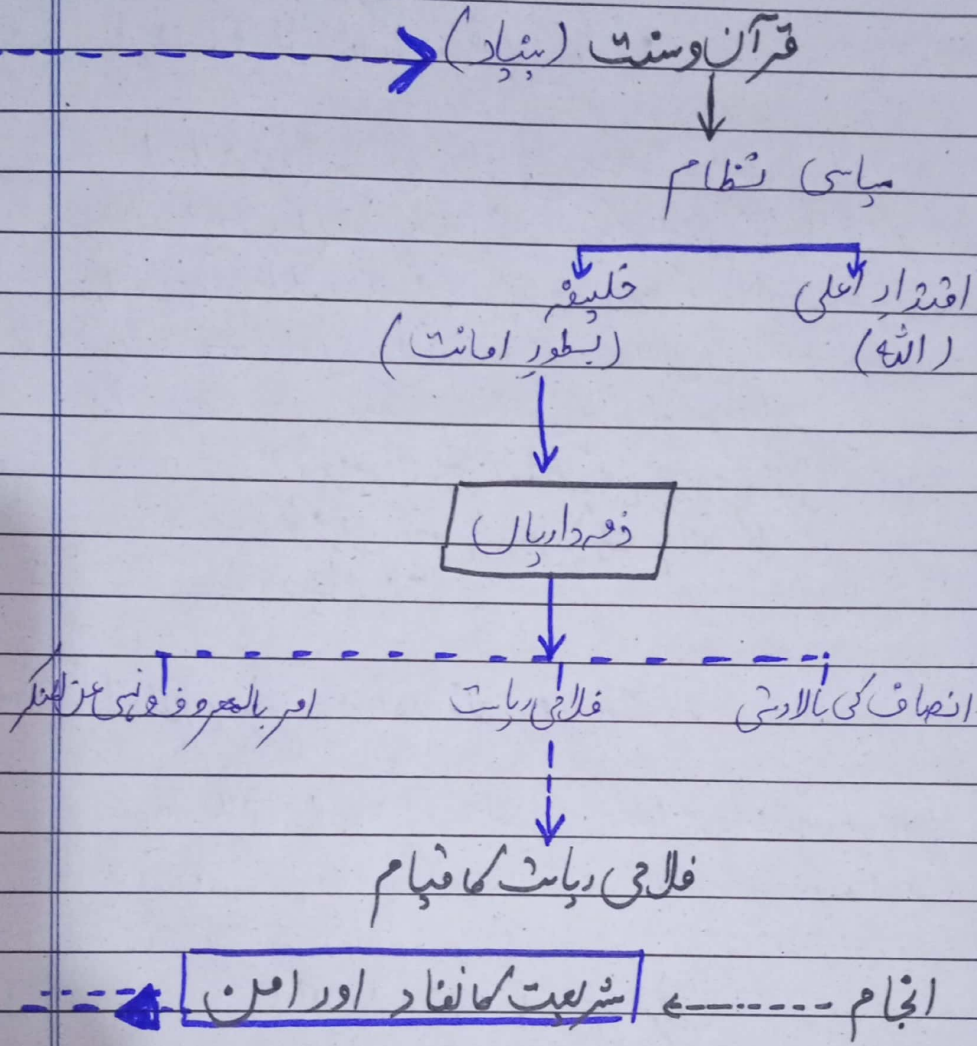 قرآن و سنت (بنیاد)
سیاسی نظام
اقتدار اعلی خلیفہ
(اللہ) (بطورِ امانت)
ذمہ داریاں
انصاف کی بالادستی فلاحی ریاست امر بالمعروف و نہی عن المنکر
فلاحی ریاست کا قیام
انجام شریعت کا نفاذ اور امن